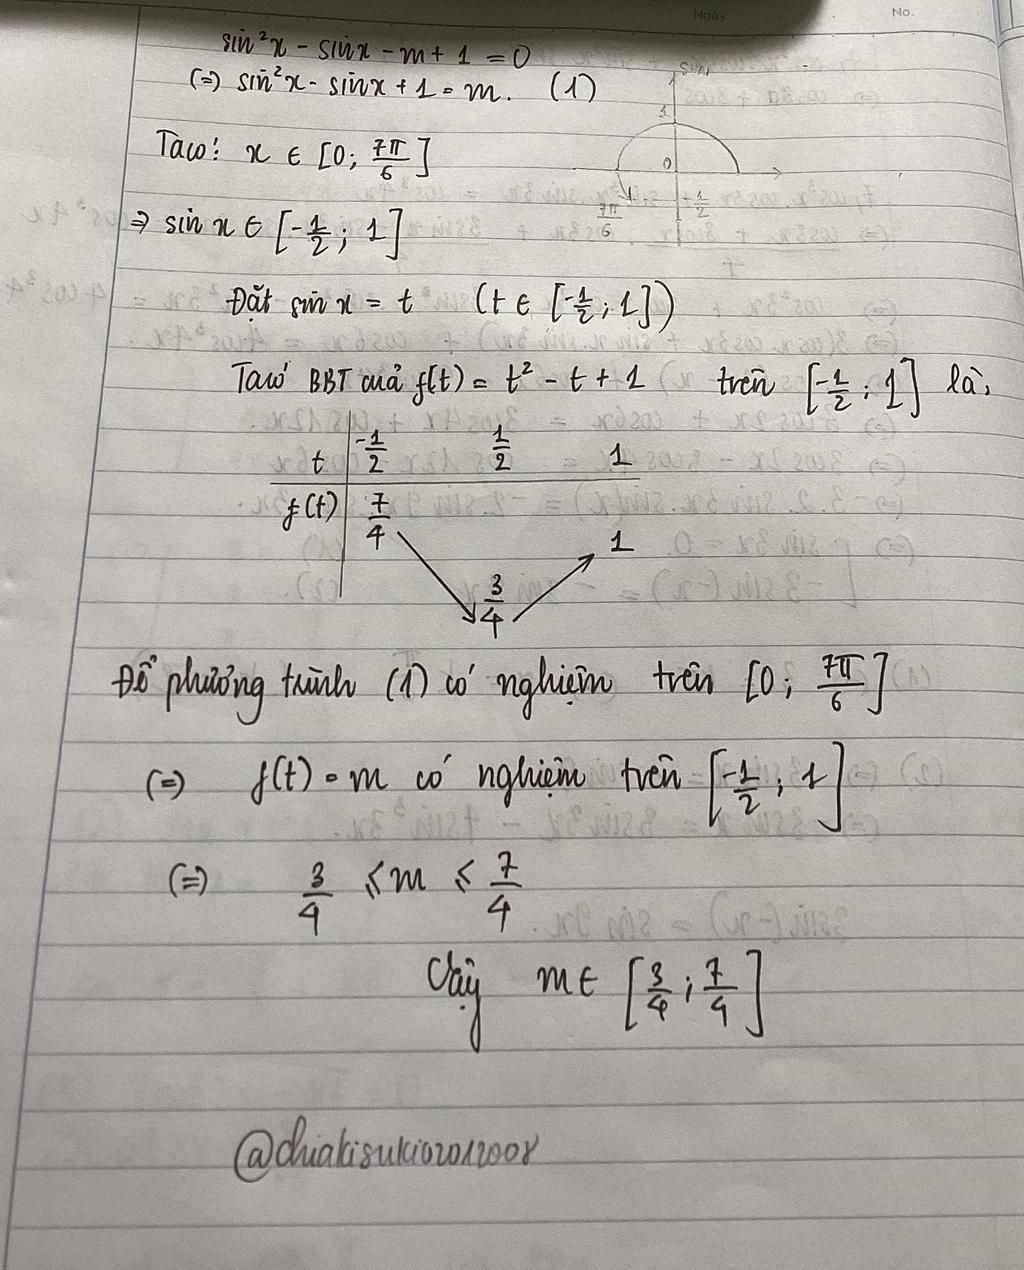 Ngày
No.
sin²x - sinx - m + 1 = 0
(=) sin²x - sinx + 1 = m. (1)
sinx
1
0
-1/2
7π/6
Ta có: x ∈ [0; 7π/6]
⇒ sin x ∈ [-1/2; 1]
Đặt sin x = t (t ∈ [-1/2; 1])
Ta có BBT cuả f(t) = t² - t + 1 trên [-1/2; 1] là:
t -1/2 1/2 1
f(t) 7/4 3/4 1
Để phương trình (1) có nghiệm trên [0; 7π/6]
(=) f(t) = m có nghiệm trên [-1/2; 1]
(=) 3/4 ≤ m ≤ 7/4
Vậy m ∈ [3/4; 7/4]
@chiakisuki02012008